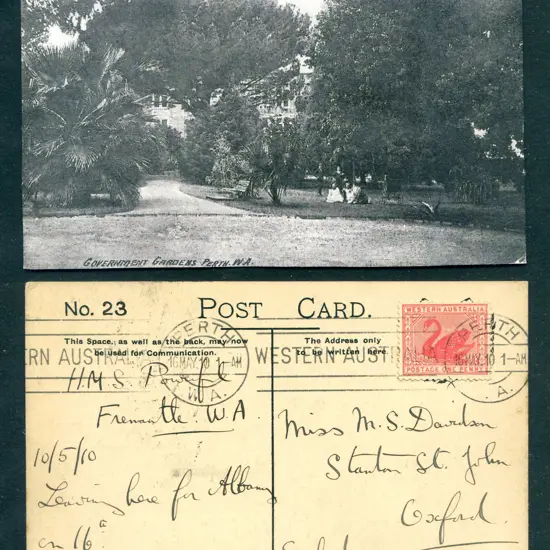 GOVERNMENT GARDENS PERTH. W.A.
No. 23 POST CARD.
This Space, as well as the back, may now
be used for Communication.
The Address only
to be written here.
WESTERN AUSTRALIA
POSTAGE ONE PENNY
PERTH
16 MAY 10 1-AM
W.A.
RN AUSTRA
WESTERN AUSTRALIA
PERTH
16 MAY 10 1-AM
.A.
H.M.S. Powerful
Fremantle. W.A.
10/5/10
Leaving here for Albany
on 16th
Miss M. S. Davidson
Stanton St. John
Oxford.